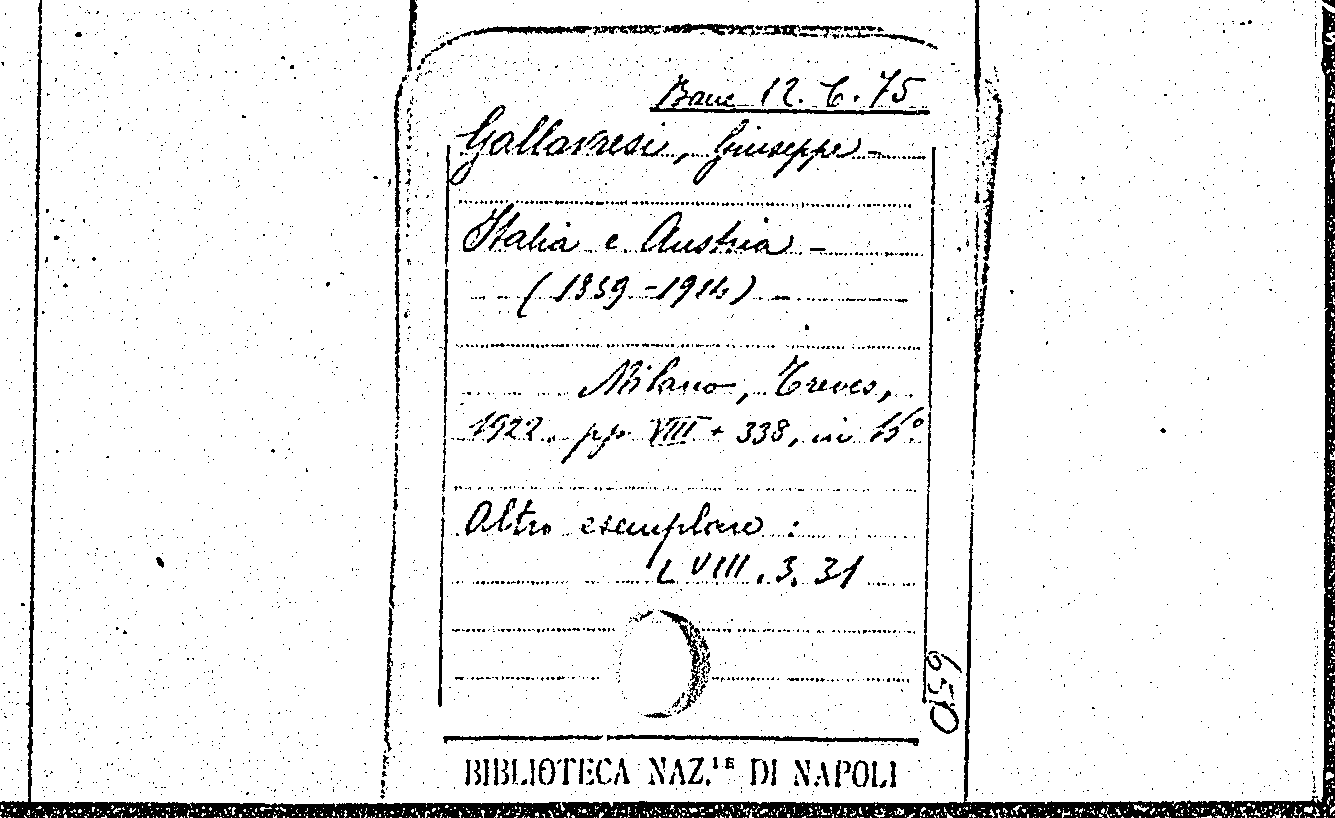 Banc 12. C. 75
Gallavresi, Giuseppe -
Italia e Austria -
(1859-1914) -
Milano, Treves,
1922. pp. VIII + 338, in 16°
Altro esemplare :
L VIII. 3. 31
650
BIBLIOTECA NAZ.LE DI NAPOLI